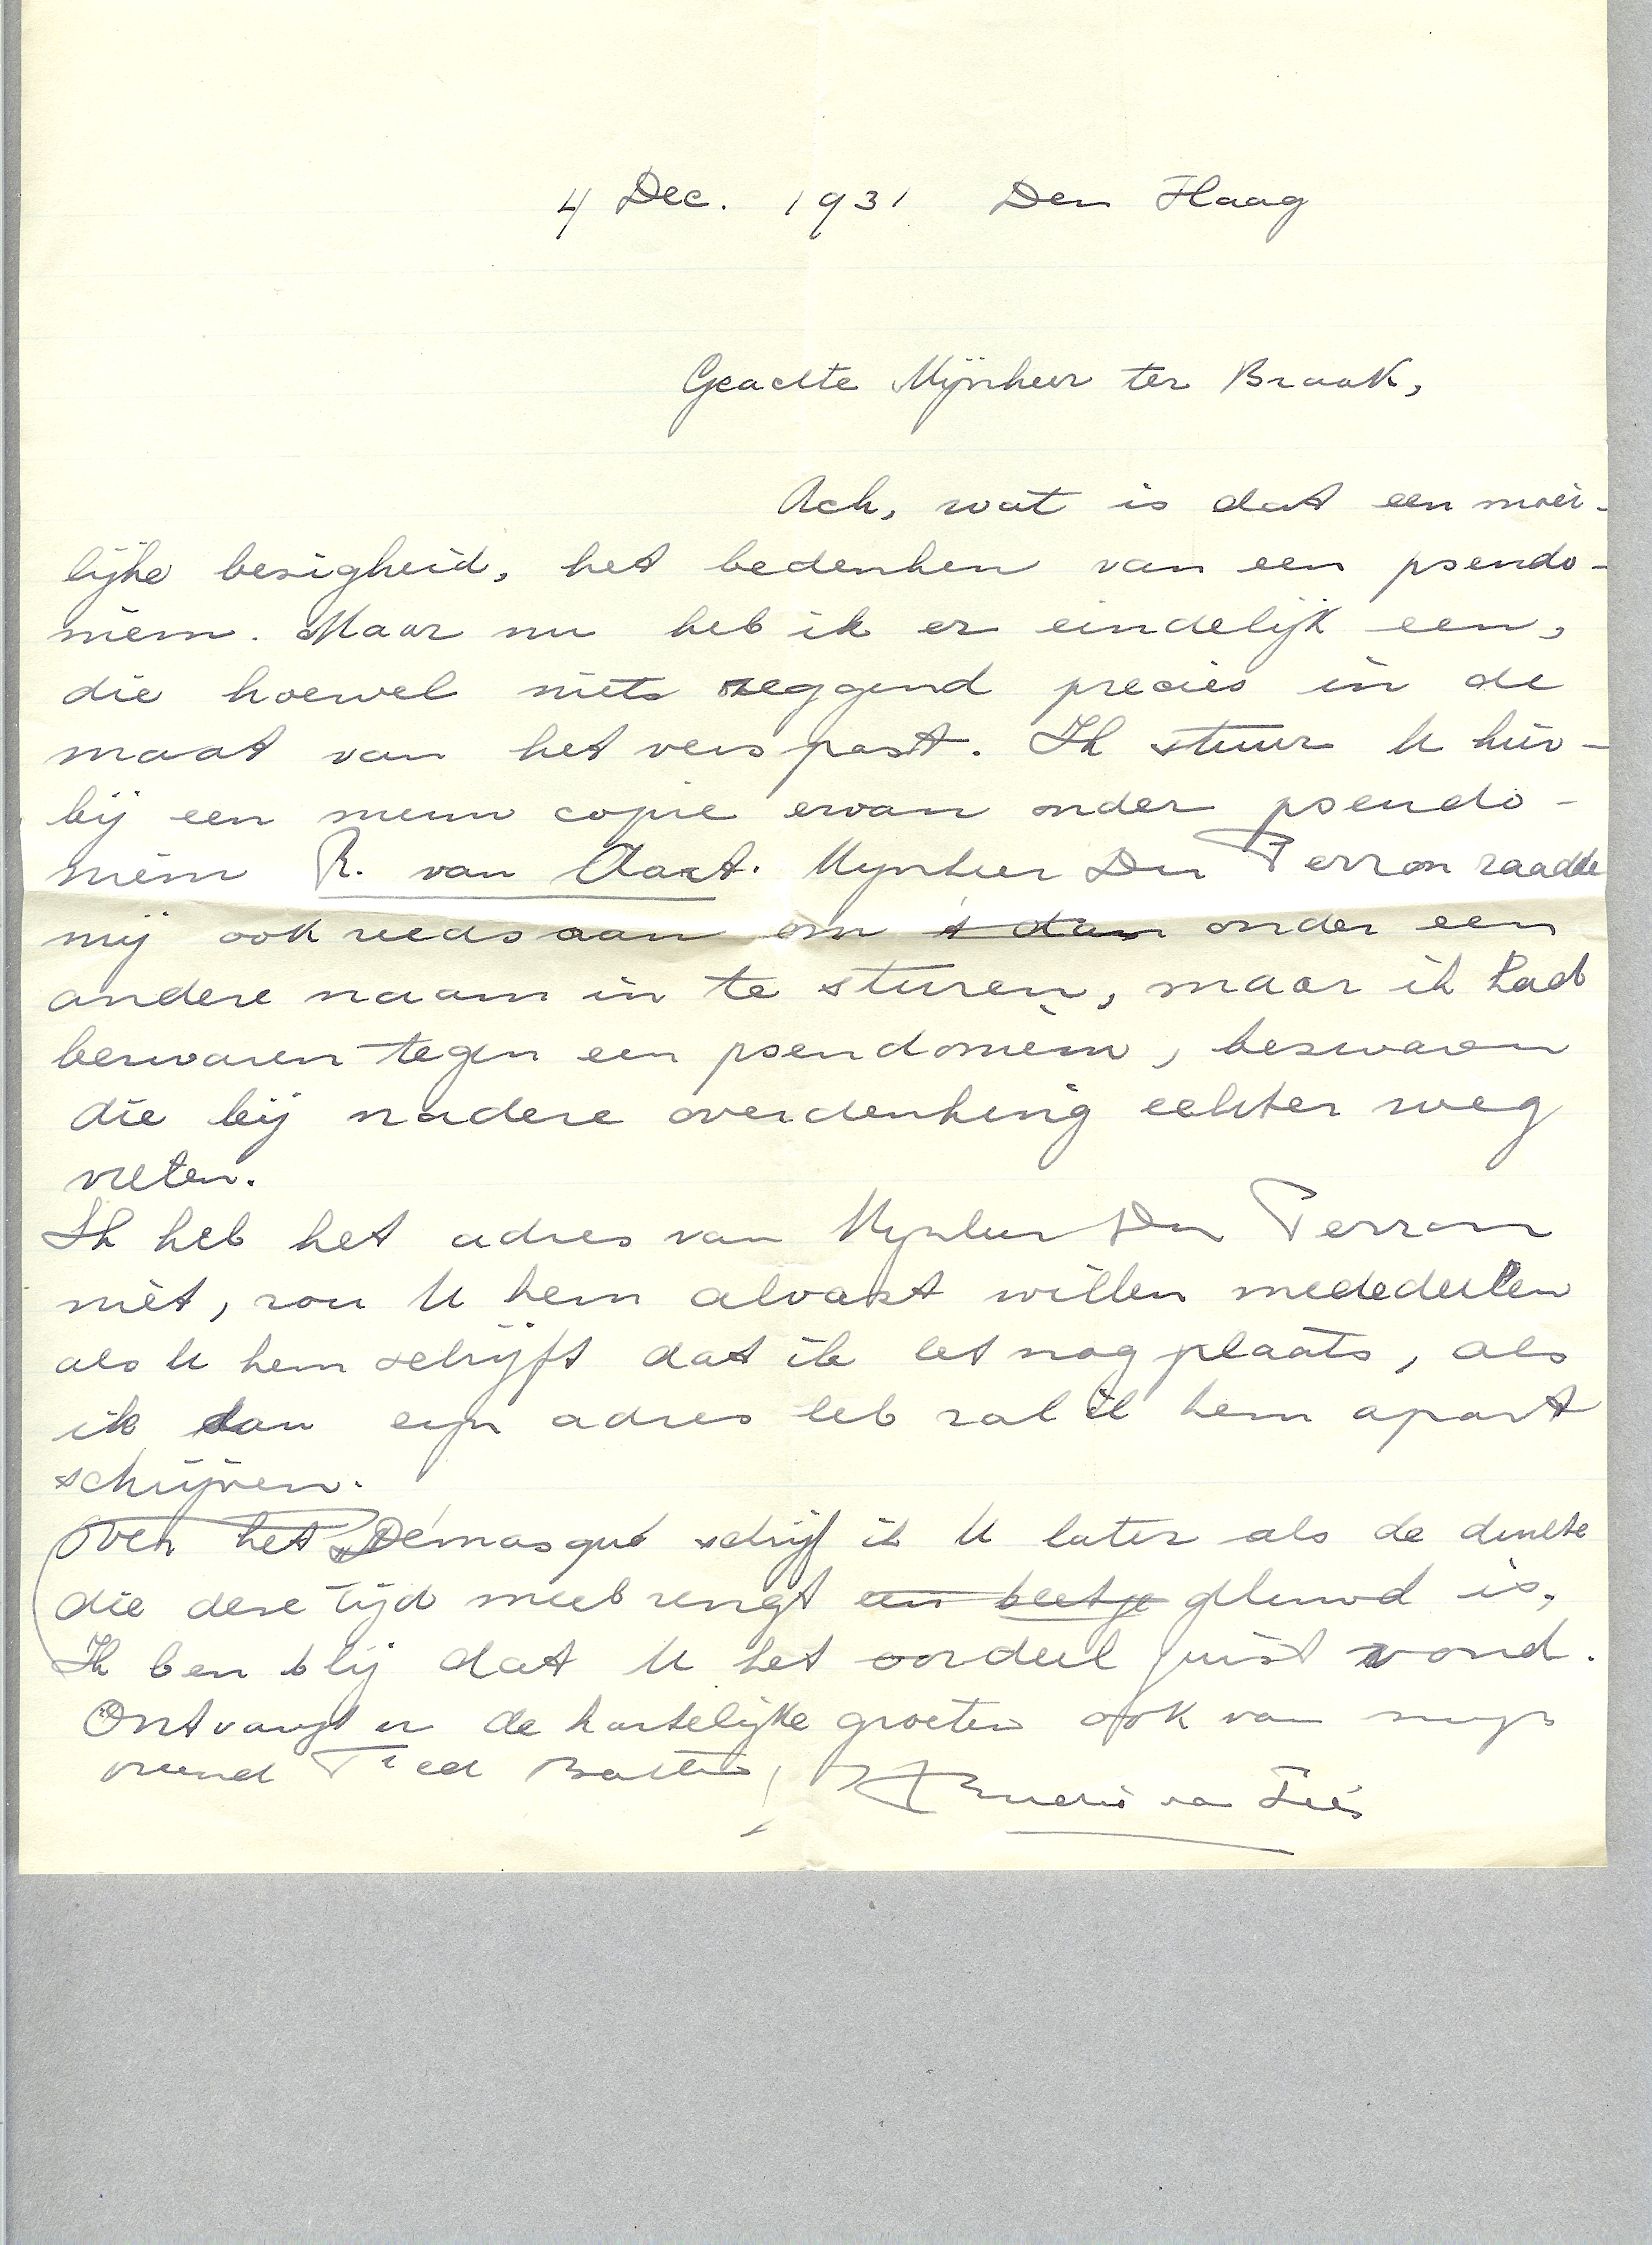 4 Dec. 1931 Den Haag
Geachte Mijnheer ter Braak,
Ach, wat is dat een moei-
lijke besigheid, het bedenken van een pseudo-
niem. Maar nu heb ik er eindelijk een,
die hoewel niets zeggend precies in de
maat van het vers past. Ik stuur U hier-
bij een nieuw copie ervan onder pseudo-
niem R. van Aart. Mijnheer Du Perron raadde
mij ook reeds aan om 't dan onder een
andere naam in te sturen, maar ik had
bezwaren tegen een pseudoniem, bezwaren
die bij nadere overdenking echter weg
vielen.
Ik heb het adres van Mijnheer Du Perron
niet, zou U hem alvast willen mededeelen
als U hem schrijft dat ik het nog plaats, als
ik dan zijn adres heb zal ik hem apart
schrijven.
Over het Démasqué schrijf ik U later als de drukte
die deze tijd meebrengt een beetje geluwd is.
Ik ben blij dat U het oordeel juist vond.
Ontvangt u de hartelijke groeten ook van mijn
vriend Fred Batten,